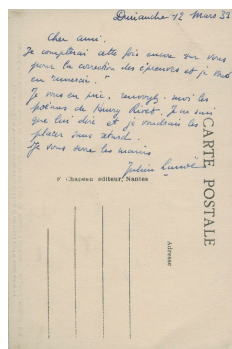 Dimanche 12 Mars 33
Cher ami.
Je compterai cette fois encore sur vous
pour la correction des épreuves et je vous
en remercie.
Je vous en prie, renvoyez-moi les
poèmes de Henry Rivet. Je ne sais
que lui dire et je voudrais les
placer sans retard.
Je vous serre les mains
Julien Lanoë
F. Chapeau éditeur, Nantes
CARTE POSTALE
Adresse